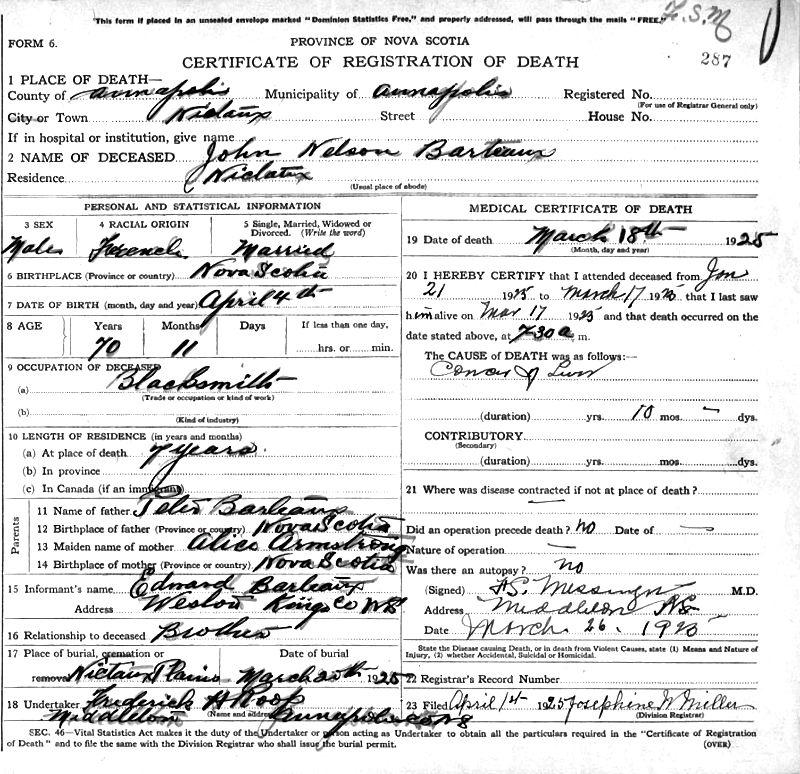 "This form if placed in an unsealed envelope marked "Dominion Statistics Free," and properly addressed, will pass through the mails "FREE."
H.S.M
FORM 6.
PROVINCE OF NOVA SCOTIA
287
CERTIFICATE OF REGISTRATION OF DEATH
1 PLACE OF DEATH—
County of Annapolis Municipality of Annapolis Registered No.
(For use of Registrar General only)
City or Town Nictaux Street House No.
If in hospital or institution, give name
2 NAME OF DECEASED John Nelson Barteaux
Residence Nictaux
(Usual place of abode)
PERSONAL AND STATISTICAL INFORMATION
3 SEX 4 RACIAL ORIGIN 5 Single, Married, Widowed or Divorced. (Write the word)
Male French Married
6 BIRTHPLACE (Province or country) Nova Scotia
7 DATE OF BIRTH (month, day and year) April 4th
8 AGE Years Months Days If less than one day,
70 11 hrs. or min.
9 OCCUPATION OF DECEASED
(a) Blacksmith
(Trade or occupation or kind of work)
(b)
(Kind of industry)
10 LENGTH OF RESIDENCE (in years and months)
(a) At place of death 7 years
(b) In province
(c) In Canada (if an immigrant)
Parents
11 Name of father Peter Barteaux
12 Birthplace of father (Province or country) Nova Scotia
13 Maiden name of mother Alice Armstrong
14 Birthplace of mother (Province or country) Nova Scotia
15 Informant's name Edward Barteaux
Address Weston Kings Co NS
16 Relationship to deceased Brother
17 Place of burial, cremation or removal Date of burial
Nictaux Plains March 20th 1925
18 Undertaker Frederick H Roop
(Name and address)
Middleton Annapolis Co NS
MEDICAL CERTIFICATE OF DEATH
19 Date of death March 18th 1925
(Month, day and year)
20 I HEREBY CERTIFY that I attended deceased from Jan
21 1925 to March 17 1925 that I last saw
him alive on Mar 17 1925 and that death occurred on the
date stated above, at 7.30 a. m.
The CAUSE OF DEATH was as follows:—
Cancer of Liver
(duration) yrs. 10 mos. — dys.
CONTRIBUTORY
(Secondary)
(duration) yrs. mos. dys.
21 Where was disease contracted if not at place of death?
—
Did an operation precede death? no Date of —
Nature of operation —
Was there an autopsy? no
(Signed) H.S. Messenger M.D.
Address Middleton NS
Date March 26. 1925
State the Disease causing Death, or in death from Violent Causes, state (1) Means and Nature of Injury, (2) whether Accidental, Suicidal or Homicidal.
22 Registrar's Record Number
23 Filed April 14 1925 Josephine W Miller
(Division Registrar)
SEC. 46—Vital Statistics Act makes it the duty of the Undertaker or person acting as Undertaker to obtain all the particulars required in the "Certificate of Registration
of Death" and to file the same with the Division Registrar who shall issue the burial permit. (OVER)